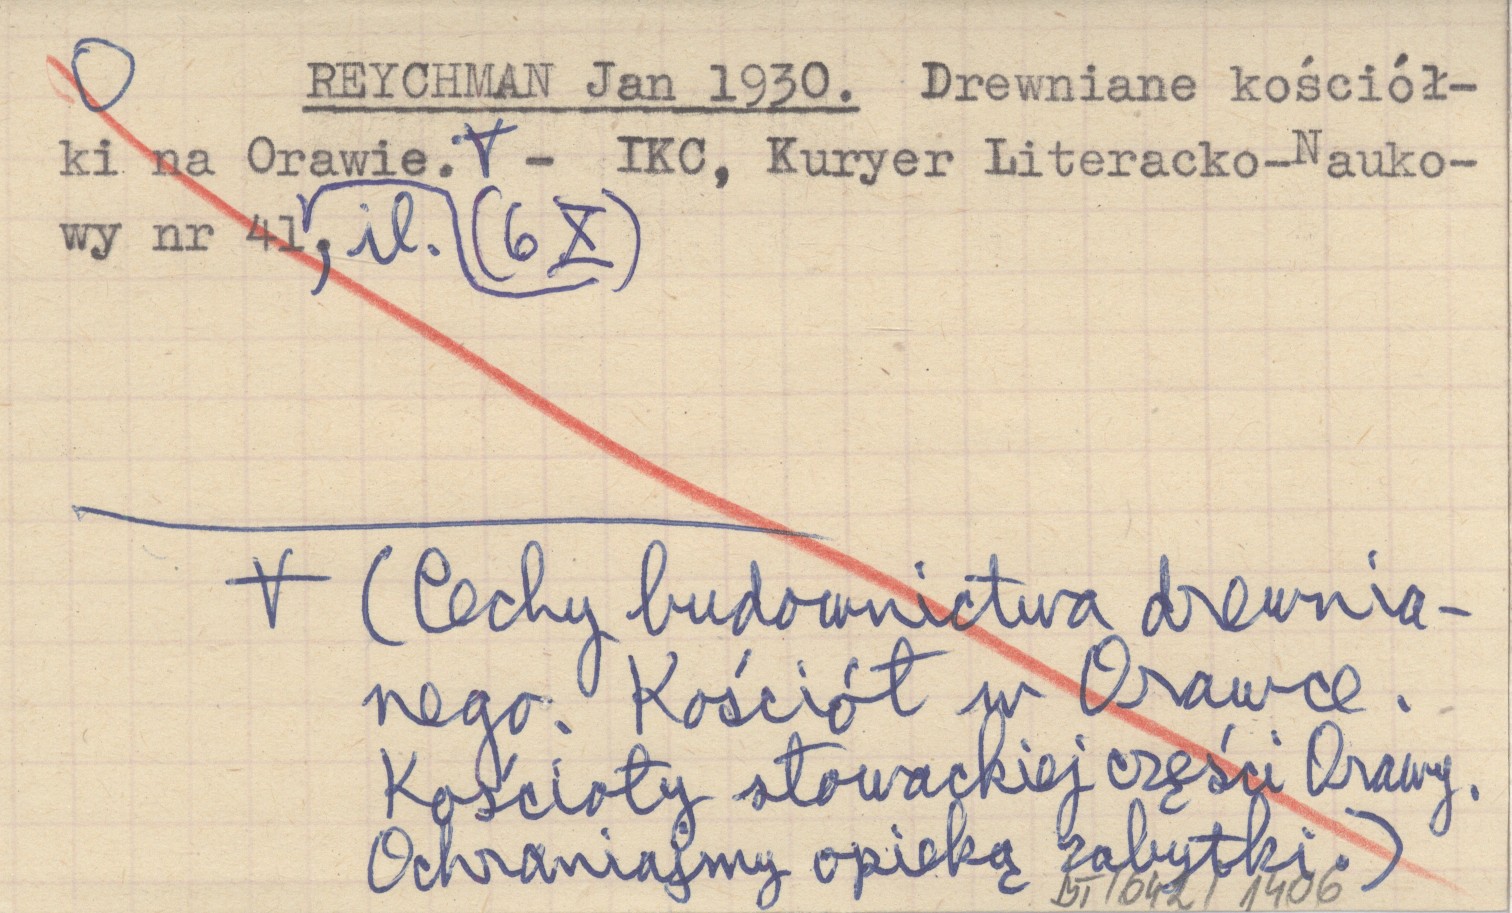 REYCHMAN Jan 1930. Drewniane kościół-
ki na Orawie. ∀ - IKC, Kuryer Literacko-Nauko-
wy nr 41, il. (6 X)
∀ (Cechy budownictwa drewnia-
nego. Kościół w Orawce.
Kościoły słowackiej części Orawy.
Ochraniajmy opieką zabytki.)
1406